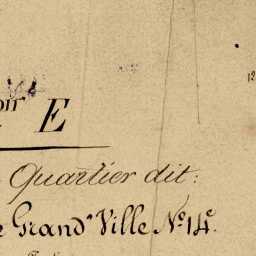 oir
E
12
Quartier dit:
e Grand' Ville N.º 14.º